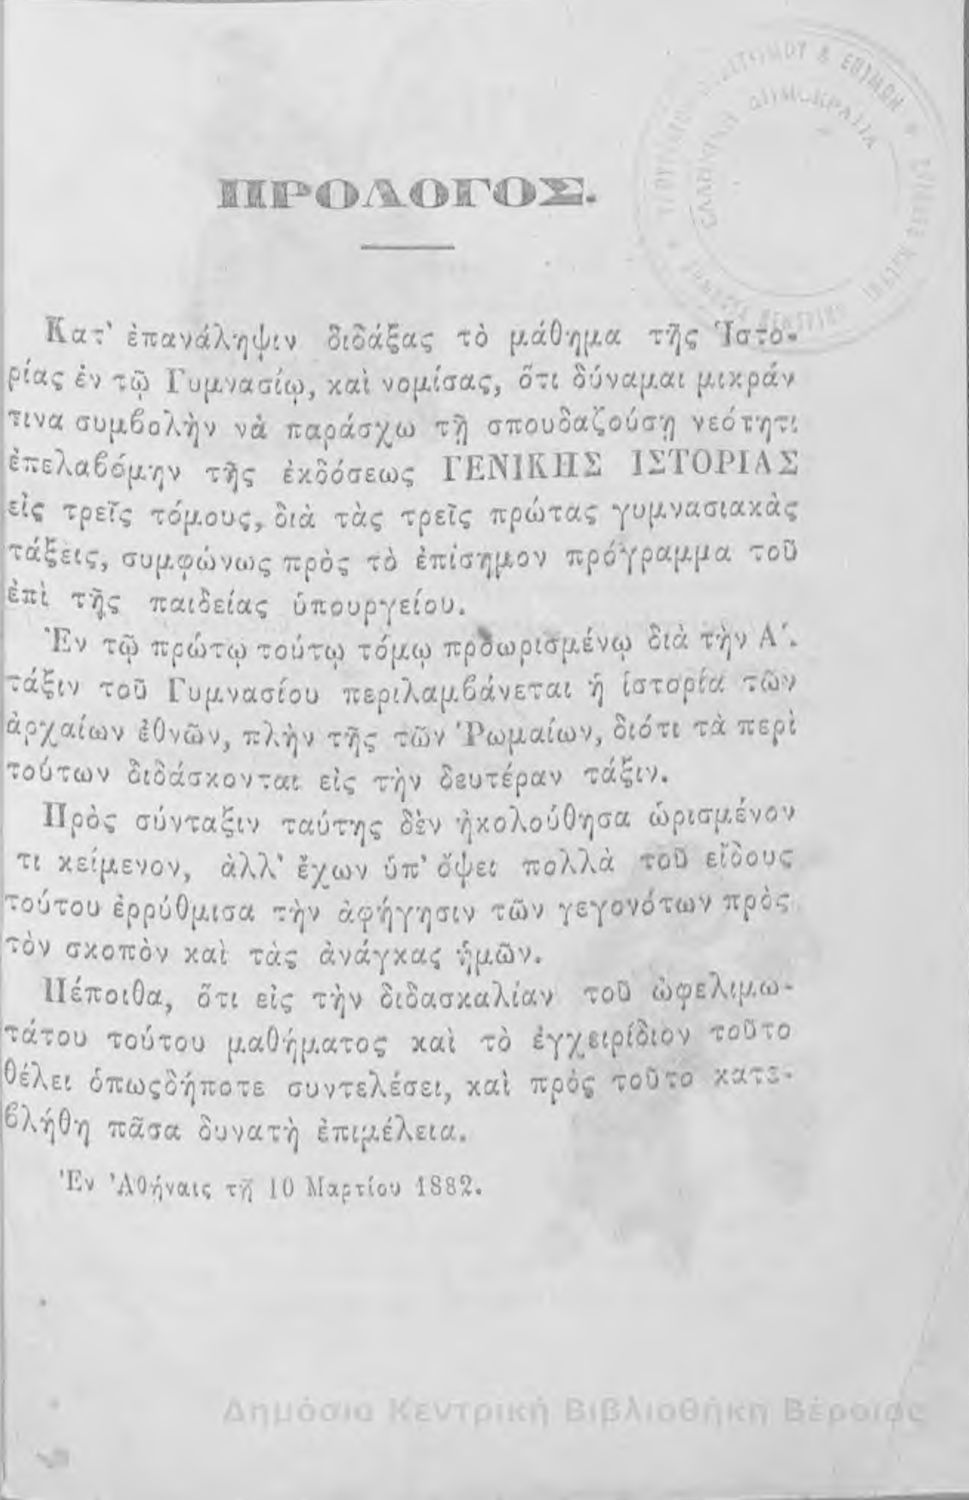 ΠΡΟΛΟΓΟΣ.
Κατ' ἐπανάληψιν διδάξας τὸ μάθημα τῆς Ἱστο-
ρίας ἐν τῷ Γυμνασίῳ, καὶ νομίσας, ὅτι δύναμαι μικράν
τινα συμβολὴν νὰ παράσχω τῇ σπουδαζούσῃ νεότητι
ἐπελαβόμην τῆς ἐκδόσεως ΓΕΝΙΚΗΣ ΙΣΤΟΡΙΑΣ
εἰς τρεῖς τόμους, διὰ τὰς τρεῖς πρώτας γυμνασιακὰς
τάξεις, συμφώνως πρὸς τὸ ἐπίσημον πρόγραμμα τοῦ
ἐπὶ τῆς παιδείας ὑπουργείου.
Ἐν τῷ πρώτῳ τούτῳ τόμῳ πρ ωρισμένῳ διὰ τὴν Α΄.
τάξιν τοῦ Γυμνασίου περιλαμβάνεται ἡ ἱστορία τῶν
ἀρχαίων ἐθνῶν, πλὴν τῆς τῶν Ῥωμαίων, διότι τὰ περὶ
τούτων διδάσκονται εἰς τὴν δευτέραν τάξιν.
Πρὸς σύνταξιν ταύτης δὲν ἠκολούθησα ὡρισμένον
τι κείμενον, ἀλλ' ἔχων ὑπ' ὄψει πολλὰ τοῦ εἴδους
τούτου ἐρρύθμισα τὴν ἀφήγησιν τῶν γεγονότων πρὸς
τὸν σκοπὸν καὶ τὰς ἀνάγκας ἡμῶν.
Πέποιθα, ὅτι εἰς τὴν διδασκαλίαν τοῦ ὠφελιμω-
τάτου τούτου μαθήματος καὶ τὸ ἐγχειρίδιον τοῦτο
θέλει ὁπωςδήποτε συντελέσει, καὶ πρὸς τοῦτο κατε-
βλήθη πᾶσα δυνατὴ ἐπιμέλεια.
Ἐν Ἀθήναις τῇ 10 Μαρτίου 1882.
ΕΛΛΗΝΙΚΗ ΔΗΜΟΚΡΑΤΙΑ
Δημόσια Κεντρική Βιβλιοθήκη Βέροιας